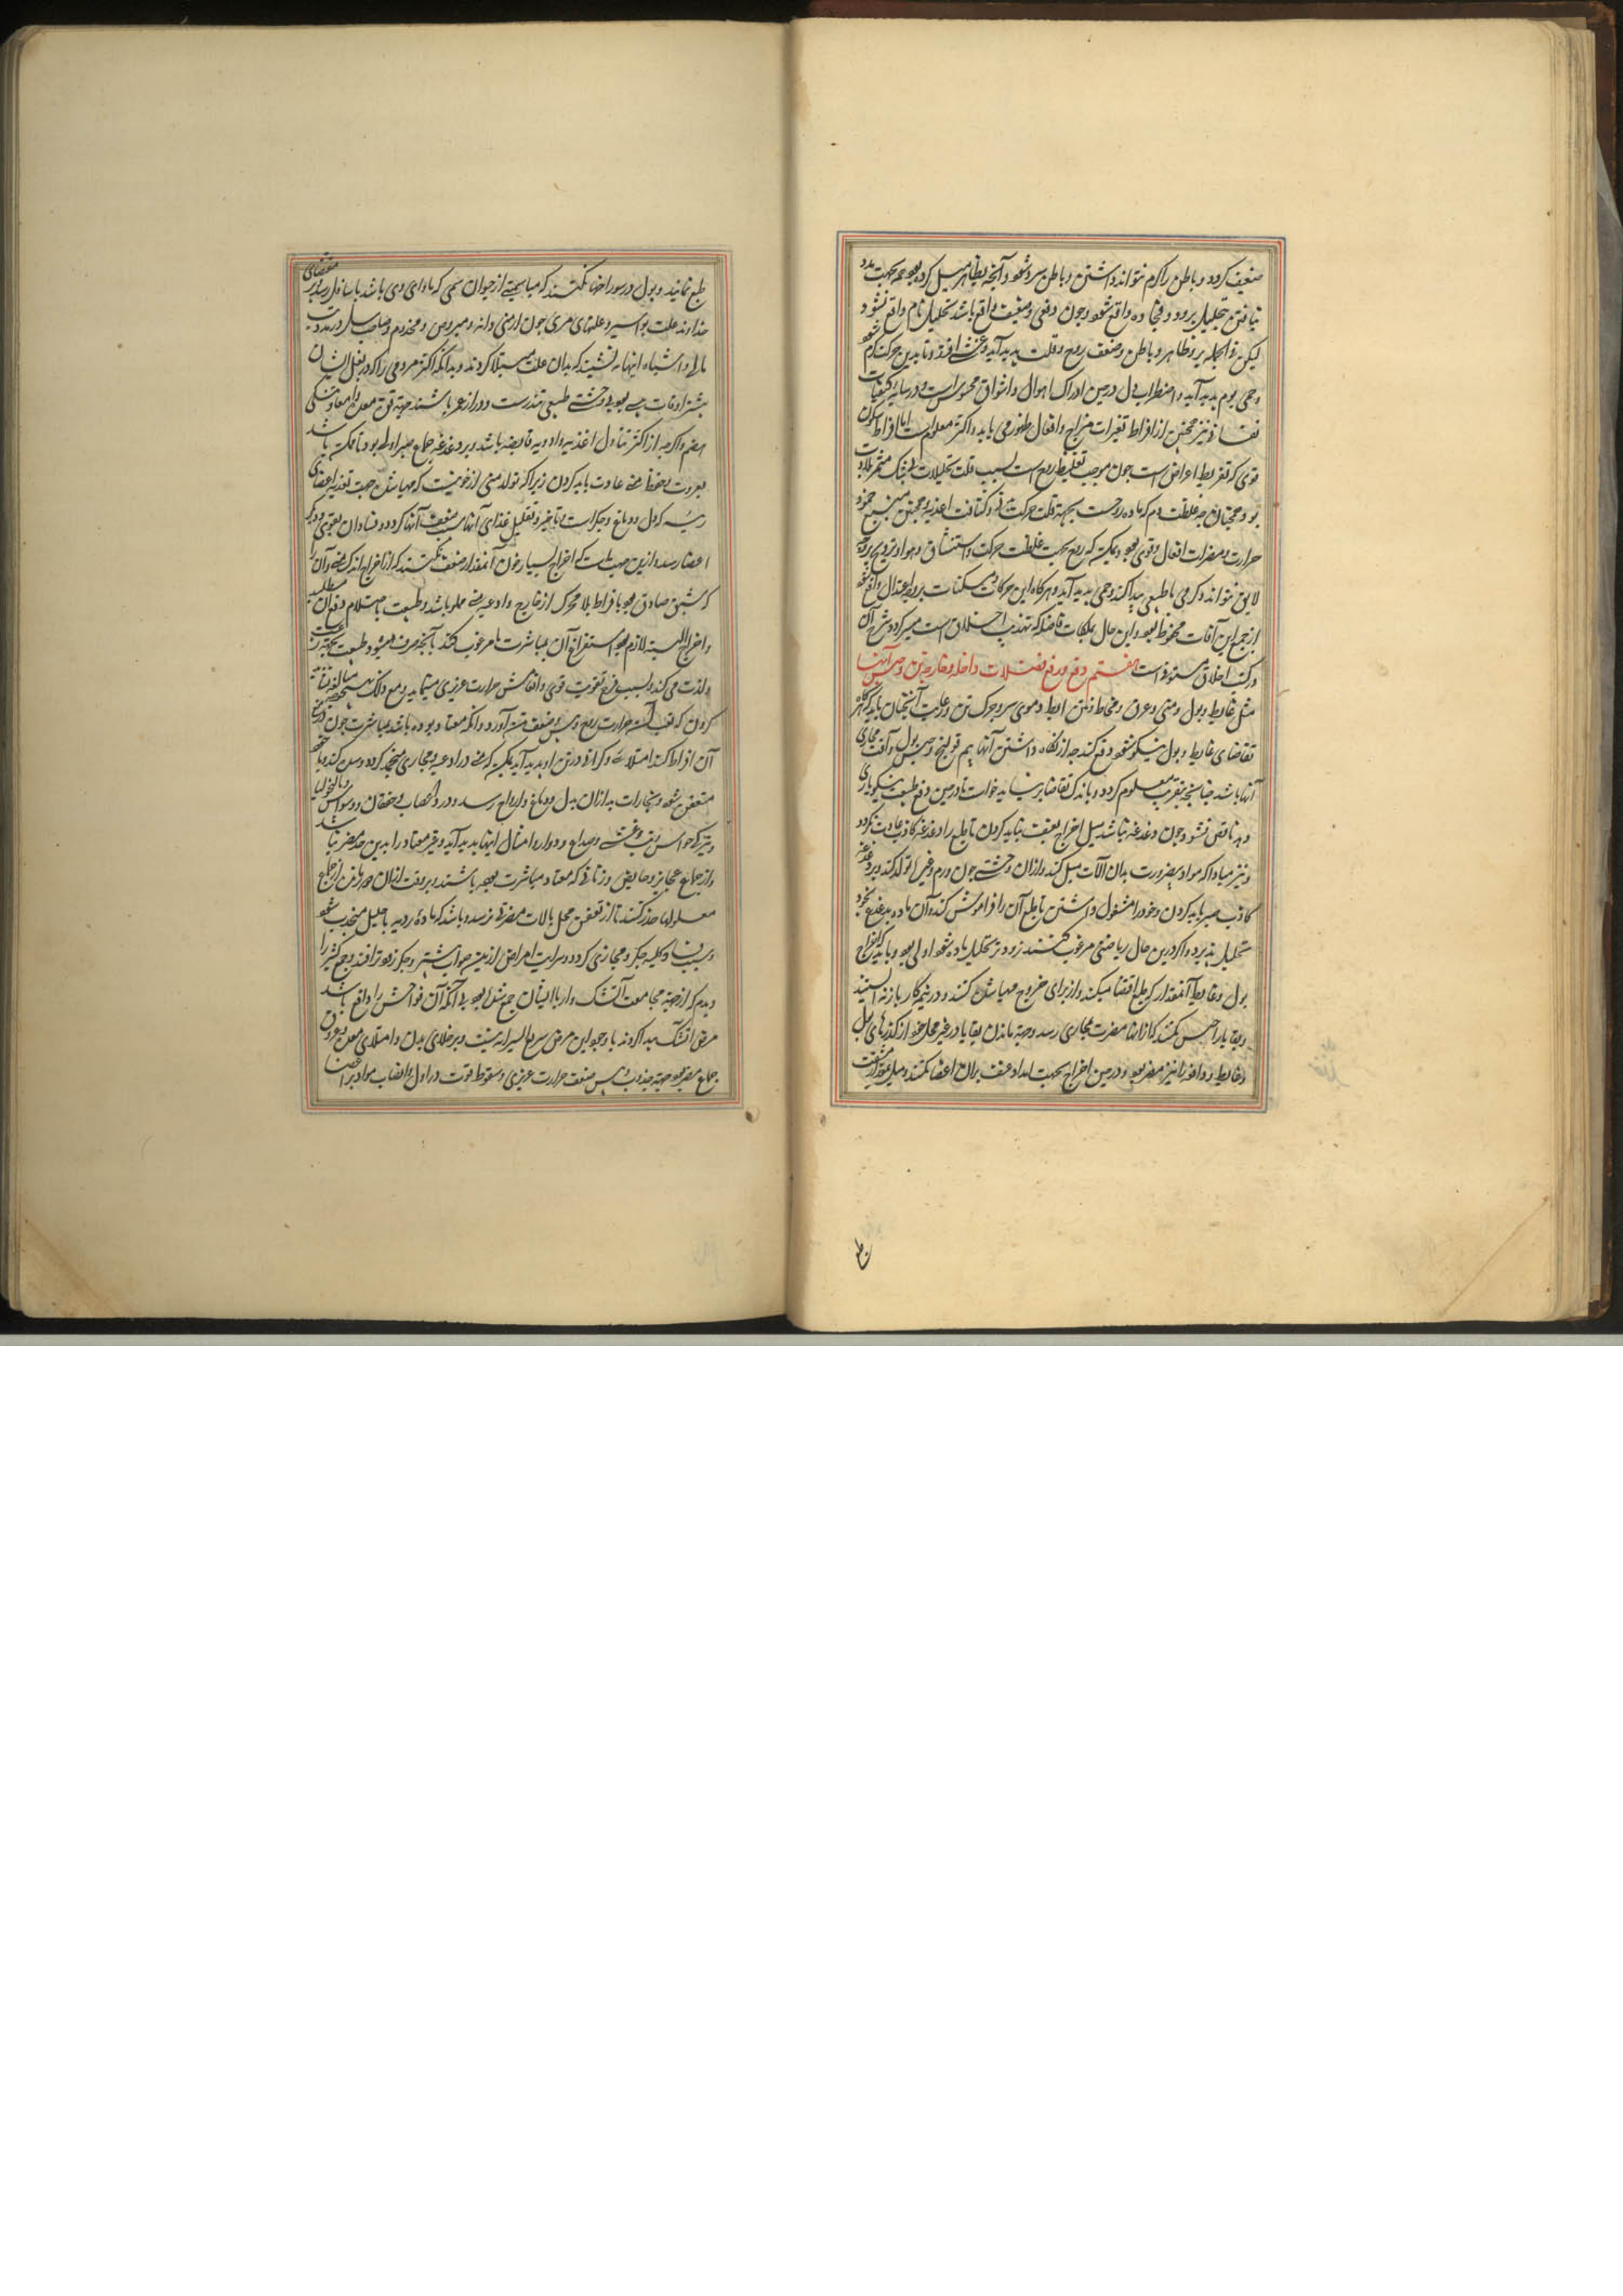 ضعیف کردد و باطن را کرم نتواند داشتن و باطن سرد شود و آنچه بظاهر میل کرده بود همه بجهت مدد
نیافتن بتحلیل برود و فجاه واقع شود و چون دفعی و ضعیف واقع باشد تحلیل تام واقع نشود
لیکن فی الجمله برد ظاهر و باطن و ضعف روح و قلت پدید آید و غشی افتد و تا بدین حرکت کرم شود
و حمی یوم پدید آید و اضطراب دل درین ادراک اهوال و اشواق محسوس است و در سایر کیفیات
نفسانی نیز همچنین از افراط تغیرات مزاج و افعال ظهور می یابد و اکثر معلوم است اما افراط سکون
قوی که تفریط اعراض است چون موجب تغلیظ روح است بسبب قلت تحلیلات بیشک مثمر بلادت
بود همچنان که غلظت دم که ماده روحست بجهة قلت حرکت و کثافت اغذیه و همچنین مهیج خمود
حرارت و مضرات افعال و قوی بود و ممکن که روح بجهت غلظت حرکت و استنشاق هوا و ترویح بروجه
لایق نتواند و کرمی نا طبیعی پیدا کند و حمی پدید آید و هرکاه این حرکات و سکنات بر وجه اعتدال واقع شود
از جمیع این آفات محفوظ بود و این حال بملکات فاضله که تهذیب اخلاق است میسر کردد و شرح آن
در کتب اخلاق مستوفی است هفتم دفع و رفع فضلات داخل و خارج تن و حبس آنها
مثل غایط و بول و منی و عرق و مخاط و نتن ابط و موی سر و چرک تن و رعایت آنچنان باید که هرکاه
تقاضای غایط و بول نیکو شود دفع کند چه از نکاه داشتن آنها بیم قولنج و حبس بول و آفت مجاری
آنها باشد چنانچه بتقریب معلوم کردد و باندک تقاضا بر نباید خواست تا درین دفع طبیعت نیکو یاری
دهد ناقص نشود و چون دغدغه نباشد میل اخراج بعنف نباید کردن تا طبع را دغدغه کاذب عادت نکردد
و نیز مبادا که مواد بضرورت بدان آلات میل کند و ازان وحشتی چون ورم و غیره تولد کند و بر دغدغه
کاذب صبر باید کردن و خود را مشغول داشتن تا طبع آن را فراموش کند و آن ماده بتدریج بخود
تحلیل پذیرد و اکر درین حال ریاضتی مرغوب کنند زودتر تحلیل ماده شود اولی بود و باید که اخراج
بول و غایط آنمقدار که طبع اقتضا میکند و از برای خروج مهیا شده کنند و در نیمه کار باز نه ایستند
و بقایا را حبس نکنند که ازان مضرت بمجاری رسد و جهة ماندن بقایا در غیر محل خود از کذرهای بول
و غایط و دافعه را نیز مضر بود و درین اخراج بجهت امداد عنف بران اعضا نکنند و میل مقدار مشقت
طبع نمایند و بول در سوراخها نکنند که مبادا سمی از حیوان سمی که ماوای وی باشد باسافل رسد و بر مقتضای
خداوند علت بواسیر و علتهای مسری چون ارمنی دانه و مبروص و مجذوم و صاحب سل و رمد
مالی و اشباه اینها نه نشینند که بدان علت مبتلا کردند و بدانکه اکثر مردمی را که در بغل ایشان
بیشتر اوقات بی بوی وحشتی طبیعی تندرست و دراز عمر باشند جهة قوت معده و معاونت
هضم و اکرچه از اکثر تناول اغذیه و ادویه قابضه باشد و بر دغدغه جماع صبر اولی بود تا ممکن باشد
بمروت بحفظ منی عادت باید کردن زیرا که تولد منی از خونیست که مهیا شده جهت تغذیه اعضای
رئیسه که دل و دماغ و جکر است و بتاخیر و تقلیل غذای آنها سبب ضعف آنها کردد و فساد آن بقوی دیکر
اعضا رسد و ازین جهت است که اخراج بسیار خون آنمقدار ضعف نکند که از اخراج اندک منی و آن را
که شبق صادق بود با فراط بلا محرک از خارج و اوعیه منی مملو باشد و طبیعت باحتلام دفع آن مطلب
و اخراج البته لازم بود استفراغ آن بمباشرت نا مرغوب کند بآنچه صرف میشود و طبیعت بجهة رغبت
ولذت می کند و بسبب فرح تقویت قوی و انتعاش حرارت غریزی مینماید و مع ذلک مبالغه نشاید
کردن که حرارت روح و ضعف قوت آورد و آنکه معتاد بوده باشد بمباشرت چون در منع
آن افراط کند امتلائی و کرانی در تن او پدید آید ممکن که منی در اوعیه و مجاری منجمد کردد و سده کند و یا
متعفن شود و بخارات بد ازان بدل و دماغ و ارواح رسد و درد اعصاب و خفقان و وسواس و مالیخولیا
و تیرکی حواس و غشی و صداع و دوار و امثال اینها پدید آید و غیر معتاد را بدین حد مضر نباشد
و از جماع عجایز و حایض و زنانی که معتاد مباشرت بوده باشند و بر وقت ازان دور مانده از جماع
معلولها حذر کنند تا از تعفن محل بآلات مضرتی نرسد و باشد که ماده ردیه باحلیل منجذب شود
و سبب فساد کلیه و جکر و مجاری کردد و سرایت امراض ازین حیوان بیشتر و جکر زودتر افتد و جمع کثیر را
دیدم که از جهة مجامعت آتشک دار با ایشان جمع شده بود بی آنکه آن فواحش را واقع باشد
مرض آتشک پیدا کردند با وجود این مرض سریع السرایه نیست و بر خلای بدن و امتلای معده و عروق
جماع مضر بود جهة جذب و یبس ضعف حرارت غریزی و سقوط قوت در اول و انصباب مواد بر اعضا